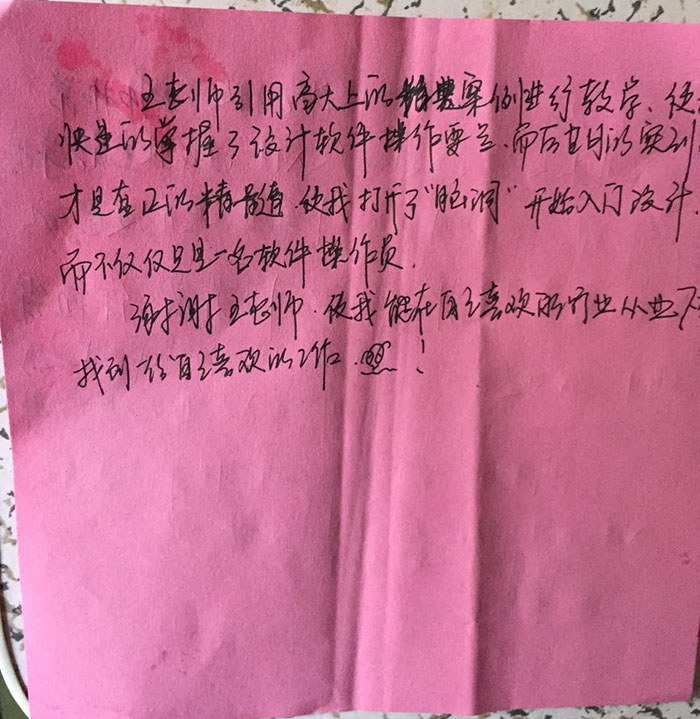 王老师引用高大上的案例进行教学，使
快速的掌握了设计软件操作要点，而后面的实列
才是真正的精髓，使我打开了“脑洞”开始入门设计
而不仅仅只是一名软件操作员．
谢谢王老师．使我能在自己喜欢的行业从业
找到一份自己喜欢的工作．！